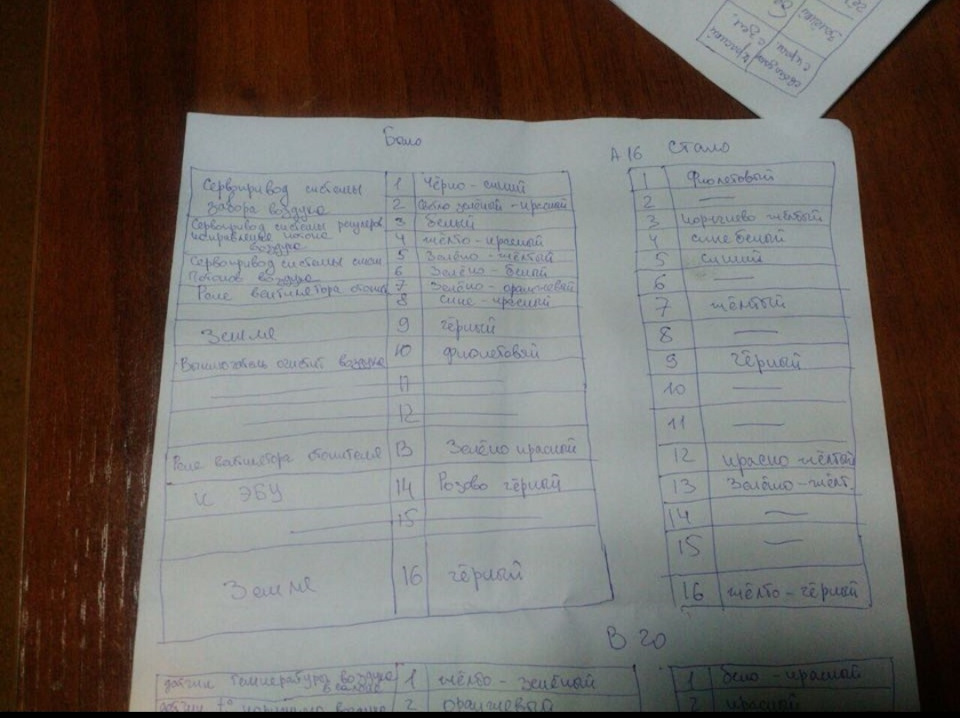 Было
А 16 Стало
Сервопривод системы забора воздуха 1 Чёрно - синий
2 Светло зелёной - красной
Сервопривод системы направления потока воздуха 3 белый
4 жёлто - красной
Сервопривод системы потоков воздуха 5 Зелёно - жёлтый
6 Зелёно - белой
Реле вентилятора 7 Зелёно - оранжевый
8 Сине - красной
Земля 9 чёрный
Выключатель воздуха 10 фиолетовый
11
12
Реле вентилятора отопителя 13 Зелёно красной
К ЭБУ 14 Розово чёрный
15
Земля 16 чёрный
1 Фиолетовый
2 —
3 коричнево жёлтый
4 сине белой
5 Синий
6 —
7 жёлтый
8 —
9 Чёрной
10 —
11 —
12 красно - жёлтый
13 Зелёно - жёлт.
14 —
15 —
16 жёлто - чёрный
В 20
датчик температуры воздуха в салоне 1 жёлто - зелёной
датчик t° воздуха 2 оранжевый
1 бело - красной
2 красной